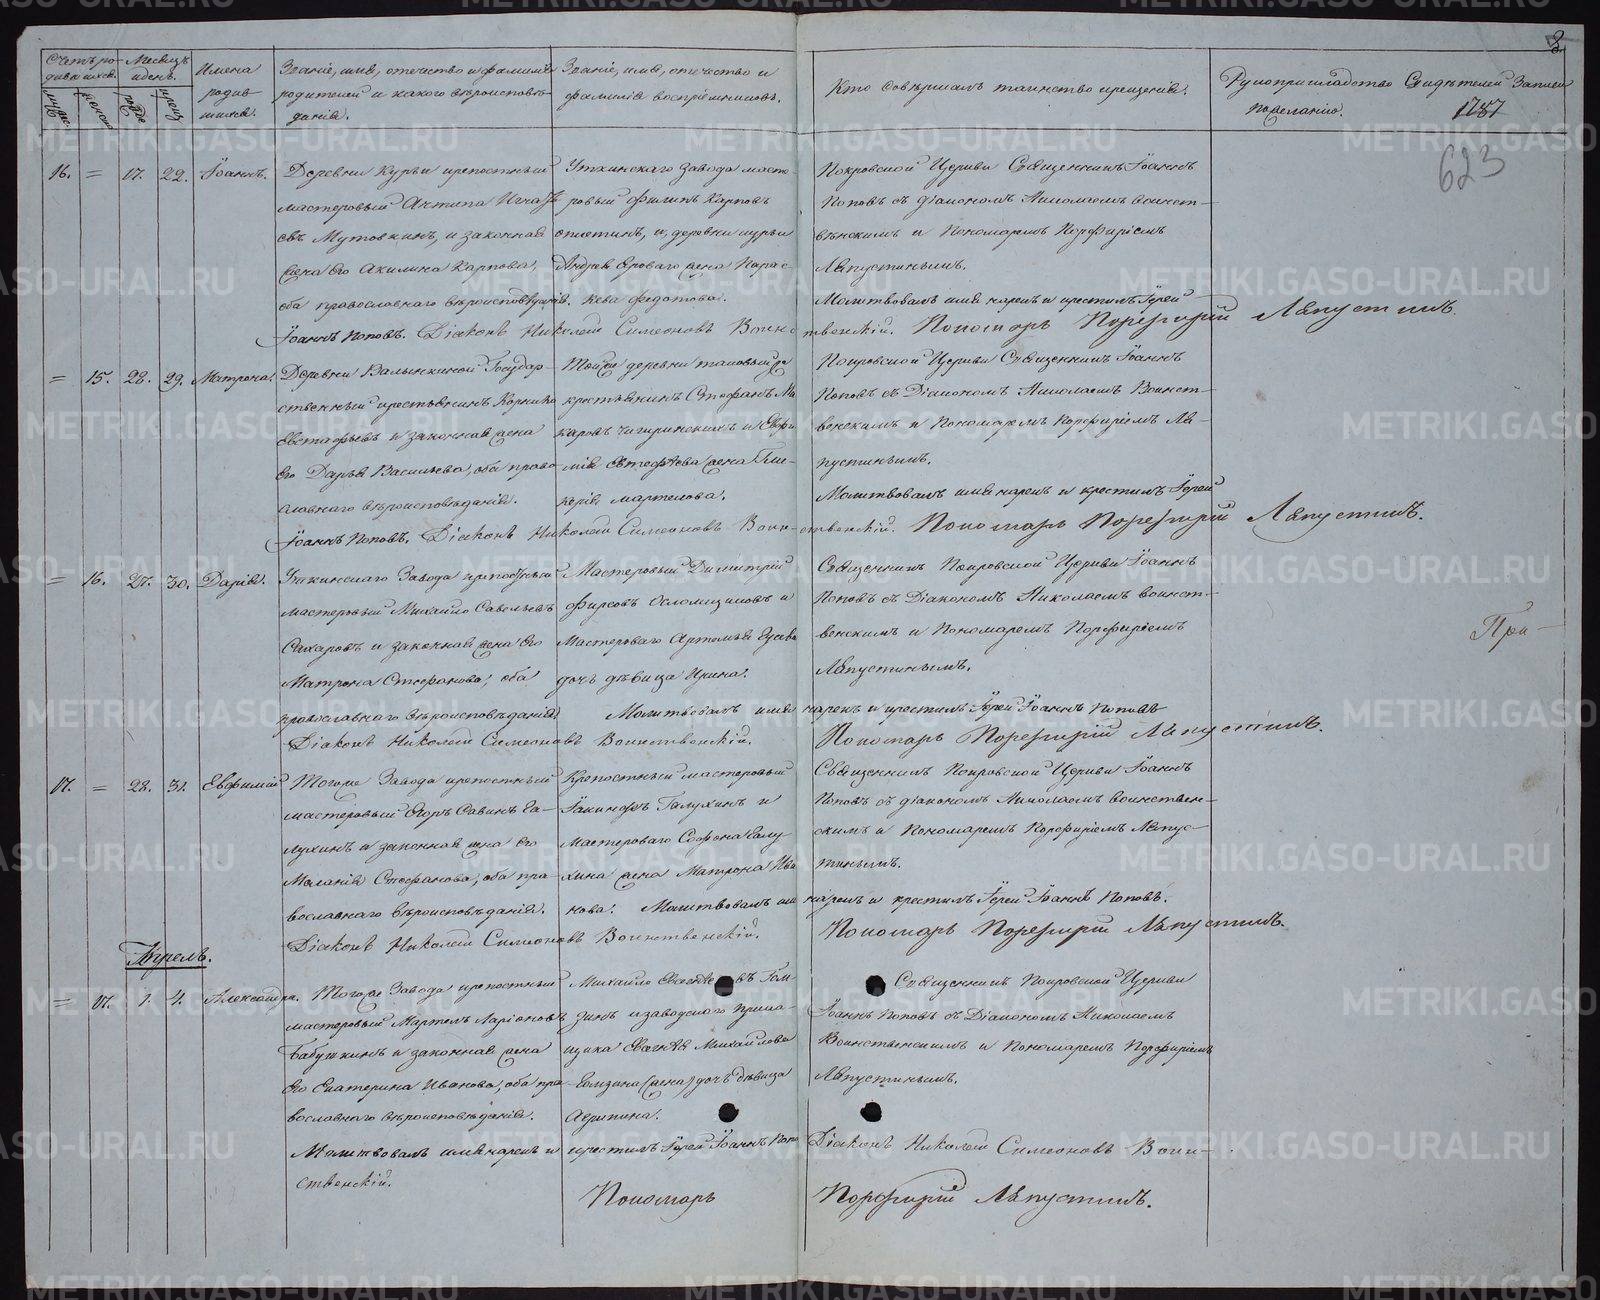 Счетъ родившихся.
Месяцъ и день.
Имена родившихся.
Званіе, имя, отечество и фамилія родителей и какого вѣроисповѣданія.
Званіе, имя, отечество и фамилія воспріемниковъ.
Кто совершалъ таинство крещенія.
Рукоприкладство Свидѣтелей Записи по желанію.
623
16. = 17. 22. Іоаннъ.
Деревни Курьи крепостный
мастеровый Антипа
Мутовкинъ, и законная
жена Его Акилина Карпова,
оба православнаго вѣроисповѣданія.
Уткинскаго Завода масте
ровый Филипъ Карповъ
и, деревни Курьи
Андрея жена Парас-
кева Федотова.
Покровской Церкви Священникъ Іоаннъ
Поповъ съ Діакономъ Николаемъ Воинст-
венскимъ и Пономаремъ Порфиріемъ
Ляпустинымъ.
Молитвовалъ имя нарекъ и крестилъ Іерей
Іоаннъ Поповъ. Діаконъ Николай Симеоновъ Воинственскій. Пономарь Порфирий Ляпустинъ.
= 15. 28. 29. Матрона.
Деревни Государ-
ственный крестьянинъ Корнило
Евстафьевъ и законная жена
Его Дарья Васильева, оба право
славнаго вѣроисповѣданія.
Той же деревни таковый же
крестьянинъ Стефанъ Ма
каровъ и
жена Гли-
керія Мартемова.
Покровской Церкви Священникъ Іоаннъ
Поповъ съ Діакономъ Николаемъ Воинст-
венскимъ и Пономаремъ Порфиріемъ Ля-
пустинымъ.
Молитвовалъ имя нарекъ и крестилъ Іерей
Іоаннъ Поповъ. Діаконъ Николай Симеоновъ Воинственскій. Пономарь Порфирий Ляпустинъ.
= 16. 27. 30. Дарія.
Уткинскаго Завода крепостный
мастеровый Михайло Савельевъ
Сахаровъ и законная жена Его
Матрона Стефанова, оба
православнаго вѣроисповѣданія.
Мастеровый Димитрій
Фирсовъ и
Мастероваго Артемья Гусева
дочь дѣвица Ирина.
Священникъ Покровской Церкви Іоаннъ
Поповъ съ Діакономъ Николаемъ Воинст-
венскимъ и Пономаремъ Порфиріемъ
Ляпустинымъ.
Молитвовалъ имя нарекъ и крестилъ Іерей Іоаннъ Поповъ
Діаконъ Николай Симеоновъ Воинственскій. Пономарь Порфирий Ляпустинъ.
При-
17. = 28. 31. Евфимій
Тогоже Завода крепостный
мастеровый Егоръ Савинъ Га-
лухинъ и законная жена Его
Меланія Стефанова, оба пра-
вославнаго вѣроисповѣданія.
Крепостный мастеровый
Іакинфъ Галухинъ и
Мастероваго Софона Галу
хина жена Матрона Ива
нова.
Священникъ Покровской Церкви Іоаннъ
Поповъ съ Діакономъ Николаемъ Воинствен-
скимъ и Пономаремъ Порфиріемъ Ляпус-
тинымъ.
Молитвовалъ имя нарекъ и крестилъ Іерей Іоаннъ Поповъ.
Діаконъ Николай Симеоновъ Воинственскій. Пономарь Порфирий Ляпустинъ.
Апрель.
= 17. 1. 4. Александра.
Тогоже Завода крепостный
мастеровый Мартемъ Ларіоновъ
Бабушкинъ и законная жена
Его Екатерина Иванова, оба пра-
вославнаго вѣроисповѣданія.
Михайло
и заводского прика-
щика Михайлова
дочь дѣвица
Агрипина.
Священникъ Покровской Церкви
Іоаннъ Поповъ съ Діакономъ Николаемъ
Воинственскимъ и Пономаремъ Порфиріемъ
Ляпустинымъ.
Молитвовалъ имя нарекъ и крестилъ Іерей Іоаннъ Попо Діаконъ Николай Симеоновъ Воин-
ственскій. Пономарь Порфирий Ляпустинъ.
METRIKI.GASO-URAL.RU